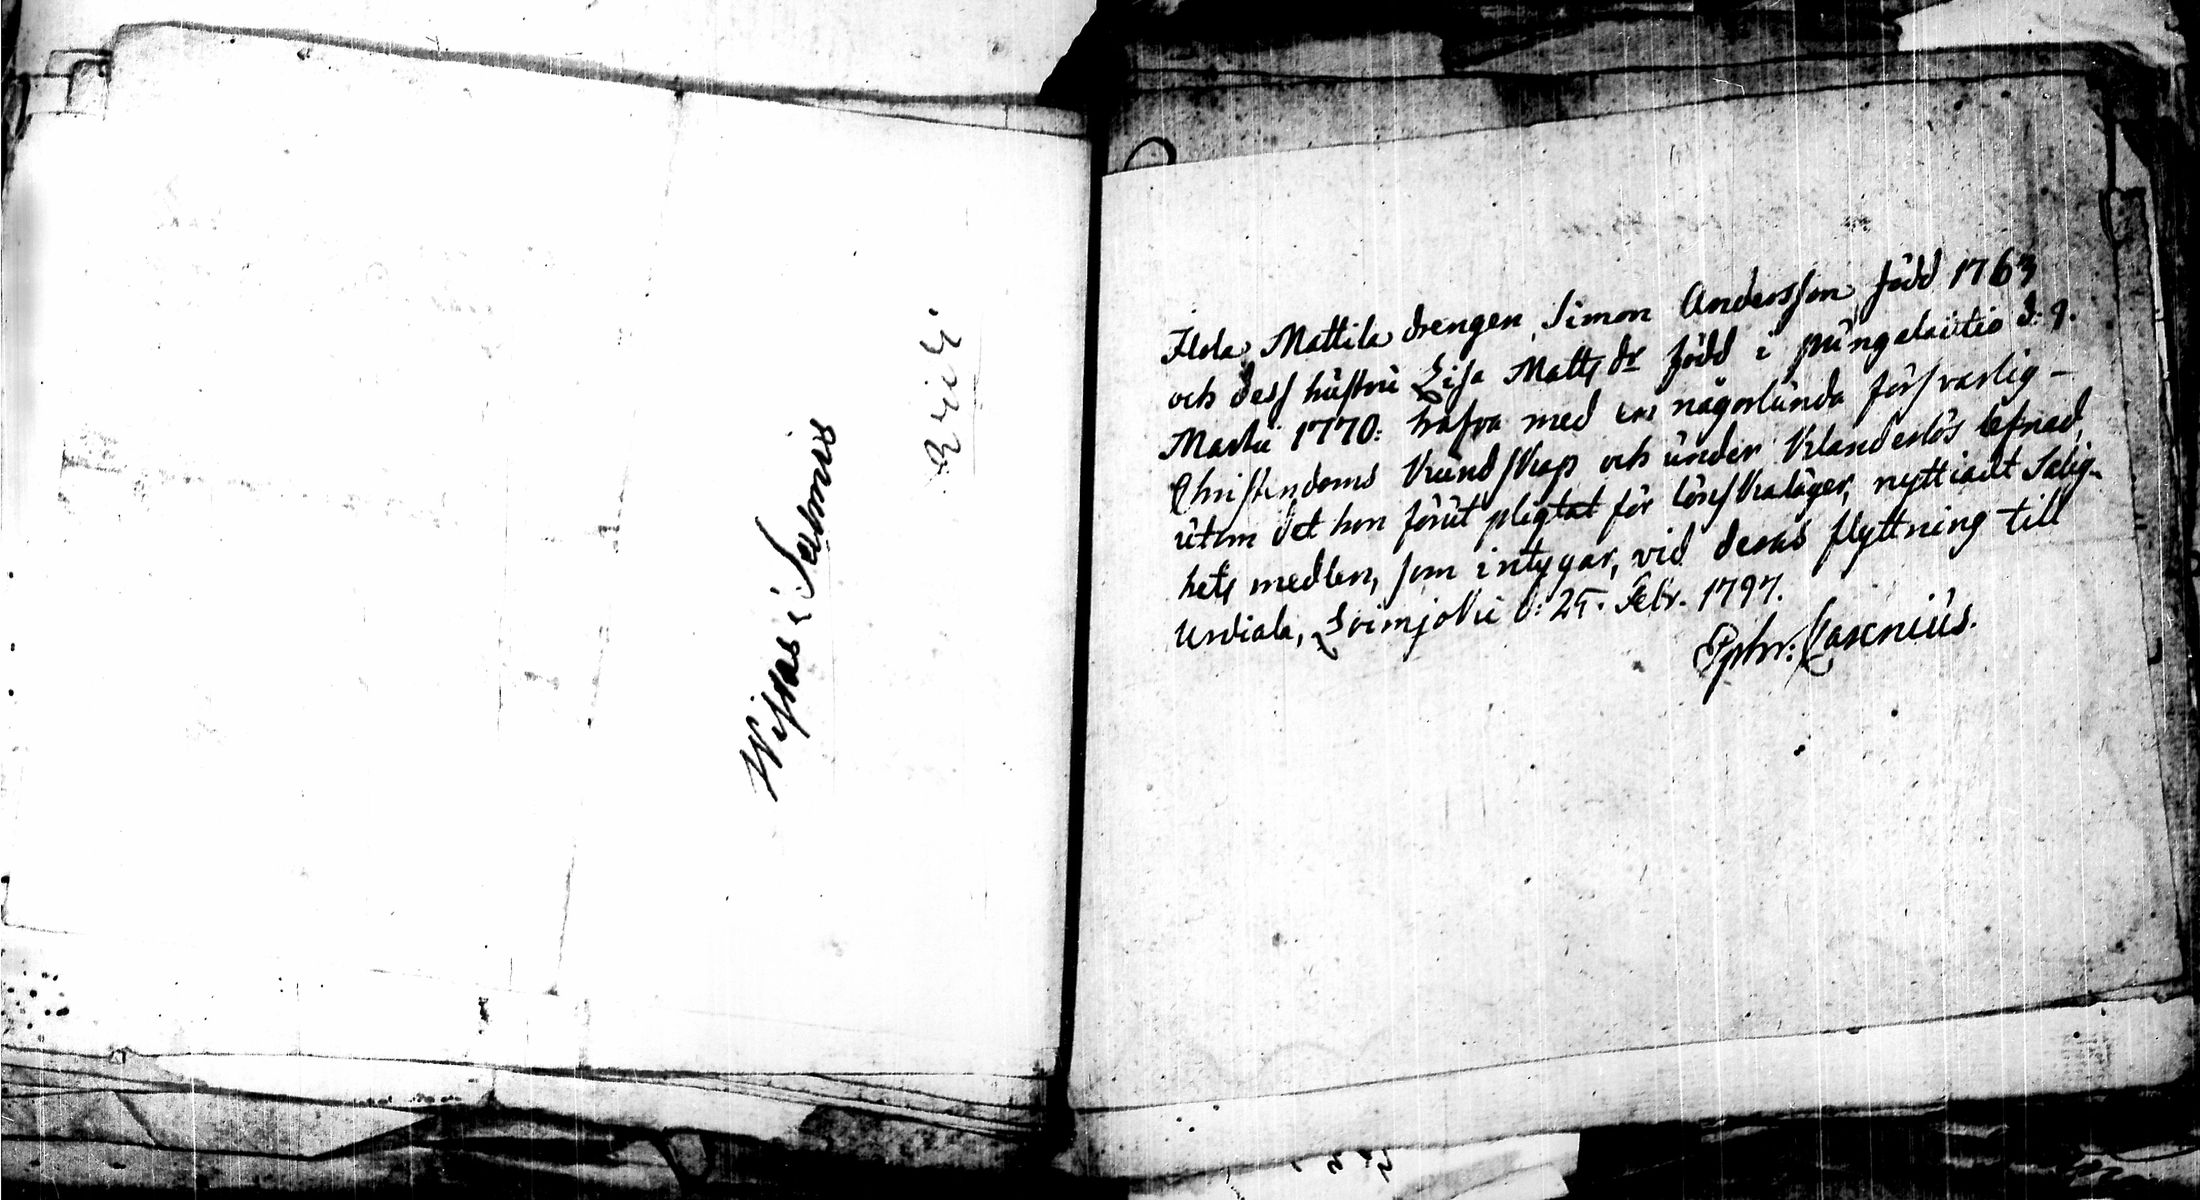 Wissas i Salmis
Flola Mattila drengen Simon Andersson född 1763
och dess hustru Lisa Matts dr född i pungalaitio d: 9.
Martii 1770: hafva med en någorlunda försvarlig-
Christendoms kundskap och under klanderlös lefnad,
utom det hon förut pligtat för lönskaläger, nyttiadt Salig-
hets medlen, som intygar, vid deras flyttning till
Urdiala, Loimjoki d: 25. Febr. 1797.
Ephr: Laxenius.